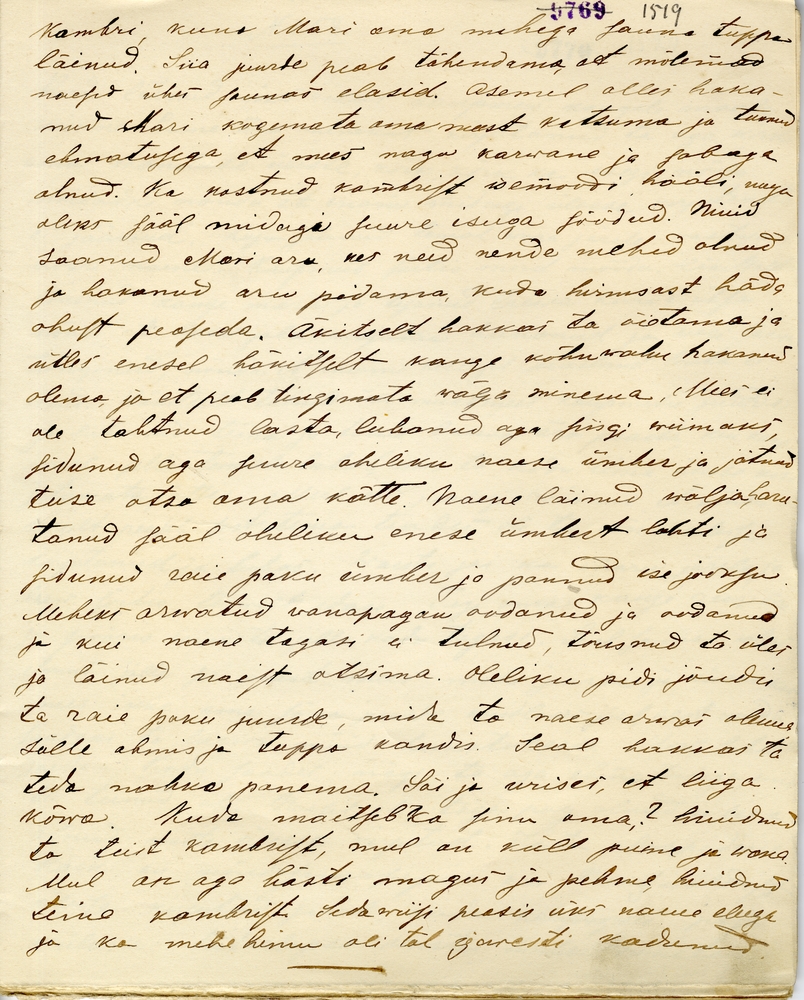 5769 1519
kambri, kuna Mari oma mehega sauna tuppa
läinud. Siia juurde peab tähendama, et mõlemad
naesed ühes saunas elasid. Asemel olles haka-
nud Mari kogemata oma meest katsuma ja tunnud
ehmatusega, et mees nagu karwane ja sabaga
olnud. Ka kostnud kambrist isemoodi hääli, nagu
oleks sääl midagi suure isuga söödud. Nüüd
saanud Mari aru, kes need nende mehed olnud
ja hakanud aru pidama, kuda hirmsast häda
ohust peaseda. Äkitselt hakkas ta oiotama ja
ütles enesel häkitselt kange kõhuwalu hakanud
olema, ja et peab tingimata wälja minema. Mees ei
ole tahtnud lasta, lubanud aga siisgi wiimaks,
sidunud aga suure oheliku naese ümber ja jätnud
teise otsa oma kätte. Naene läinud wälja, haru-
tanud sääl oheliku enese ümbert lahti ja
sidunud raie paku ümber ja pannud ise jooksu.
Meheks arwatud wanapagan oodanud ja oodanud
ja kui naene tagasi ei tulnud, tõusnud ta üles
ja läinud naist otsima. Oheliku pidi jõudis
ta raie paku juurde, mida ta naese arwas olema
sülle ahmis ja tuppa kandis. Seal hakkas ta
teda nahka panema. Söi ja urises, et liiga
kõwa. Kuda maitseb ka sinu oma,? hüüdnud
ta teist kambrist, mul on küll puine ja wana.
Mul on aga hästi magus ja pehme, hüüdnud
teine kambrist. Sedawiisi peasis üks naene eluga
ja ka mehe himu oli tal igawesti kadunud.